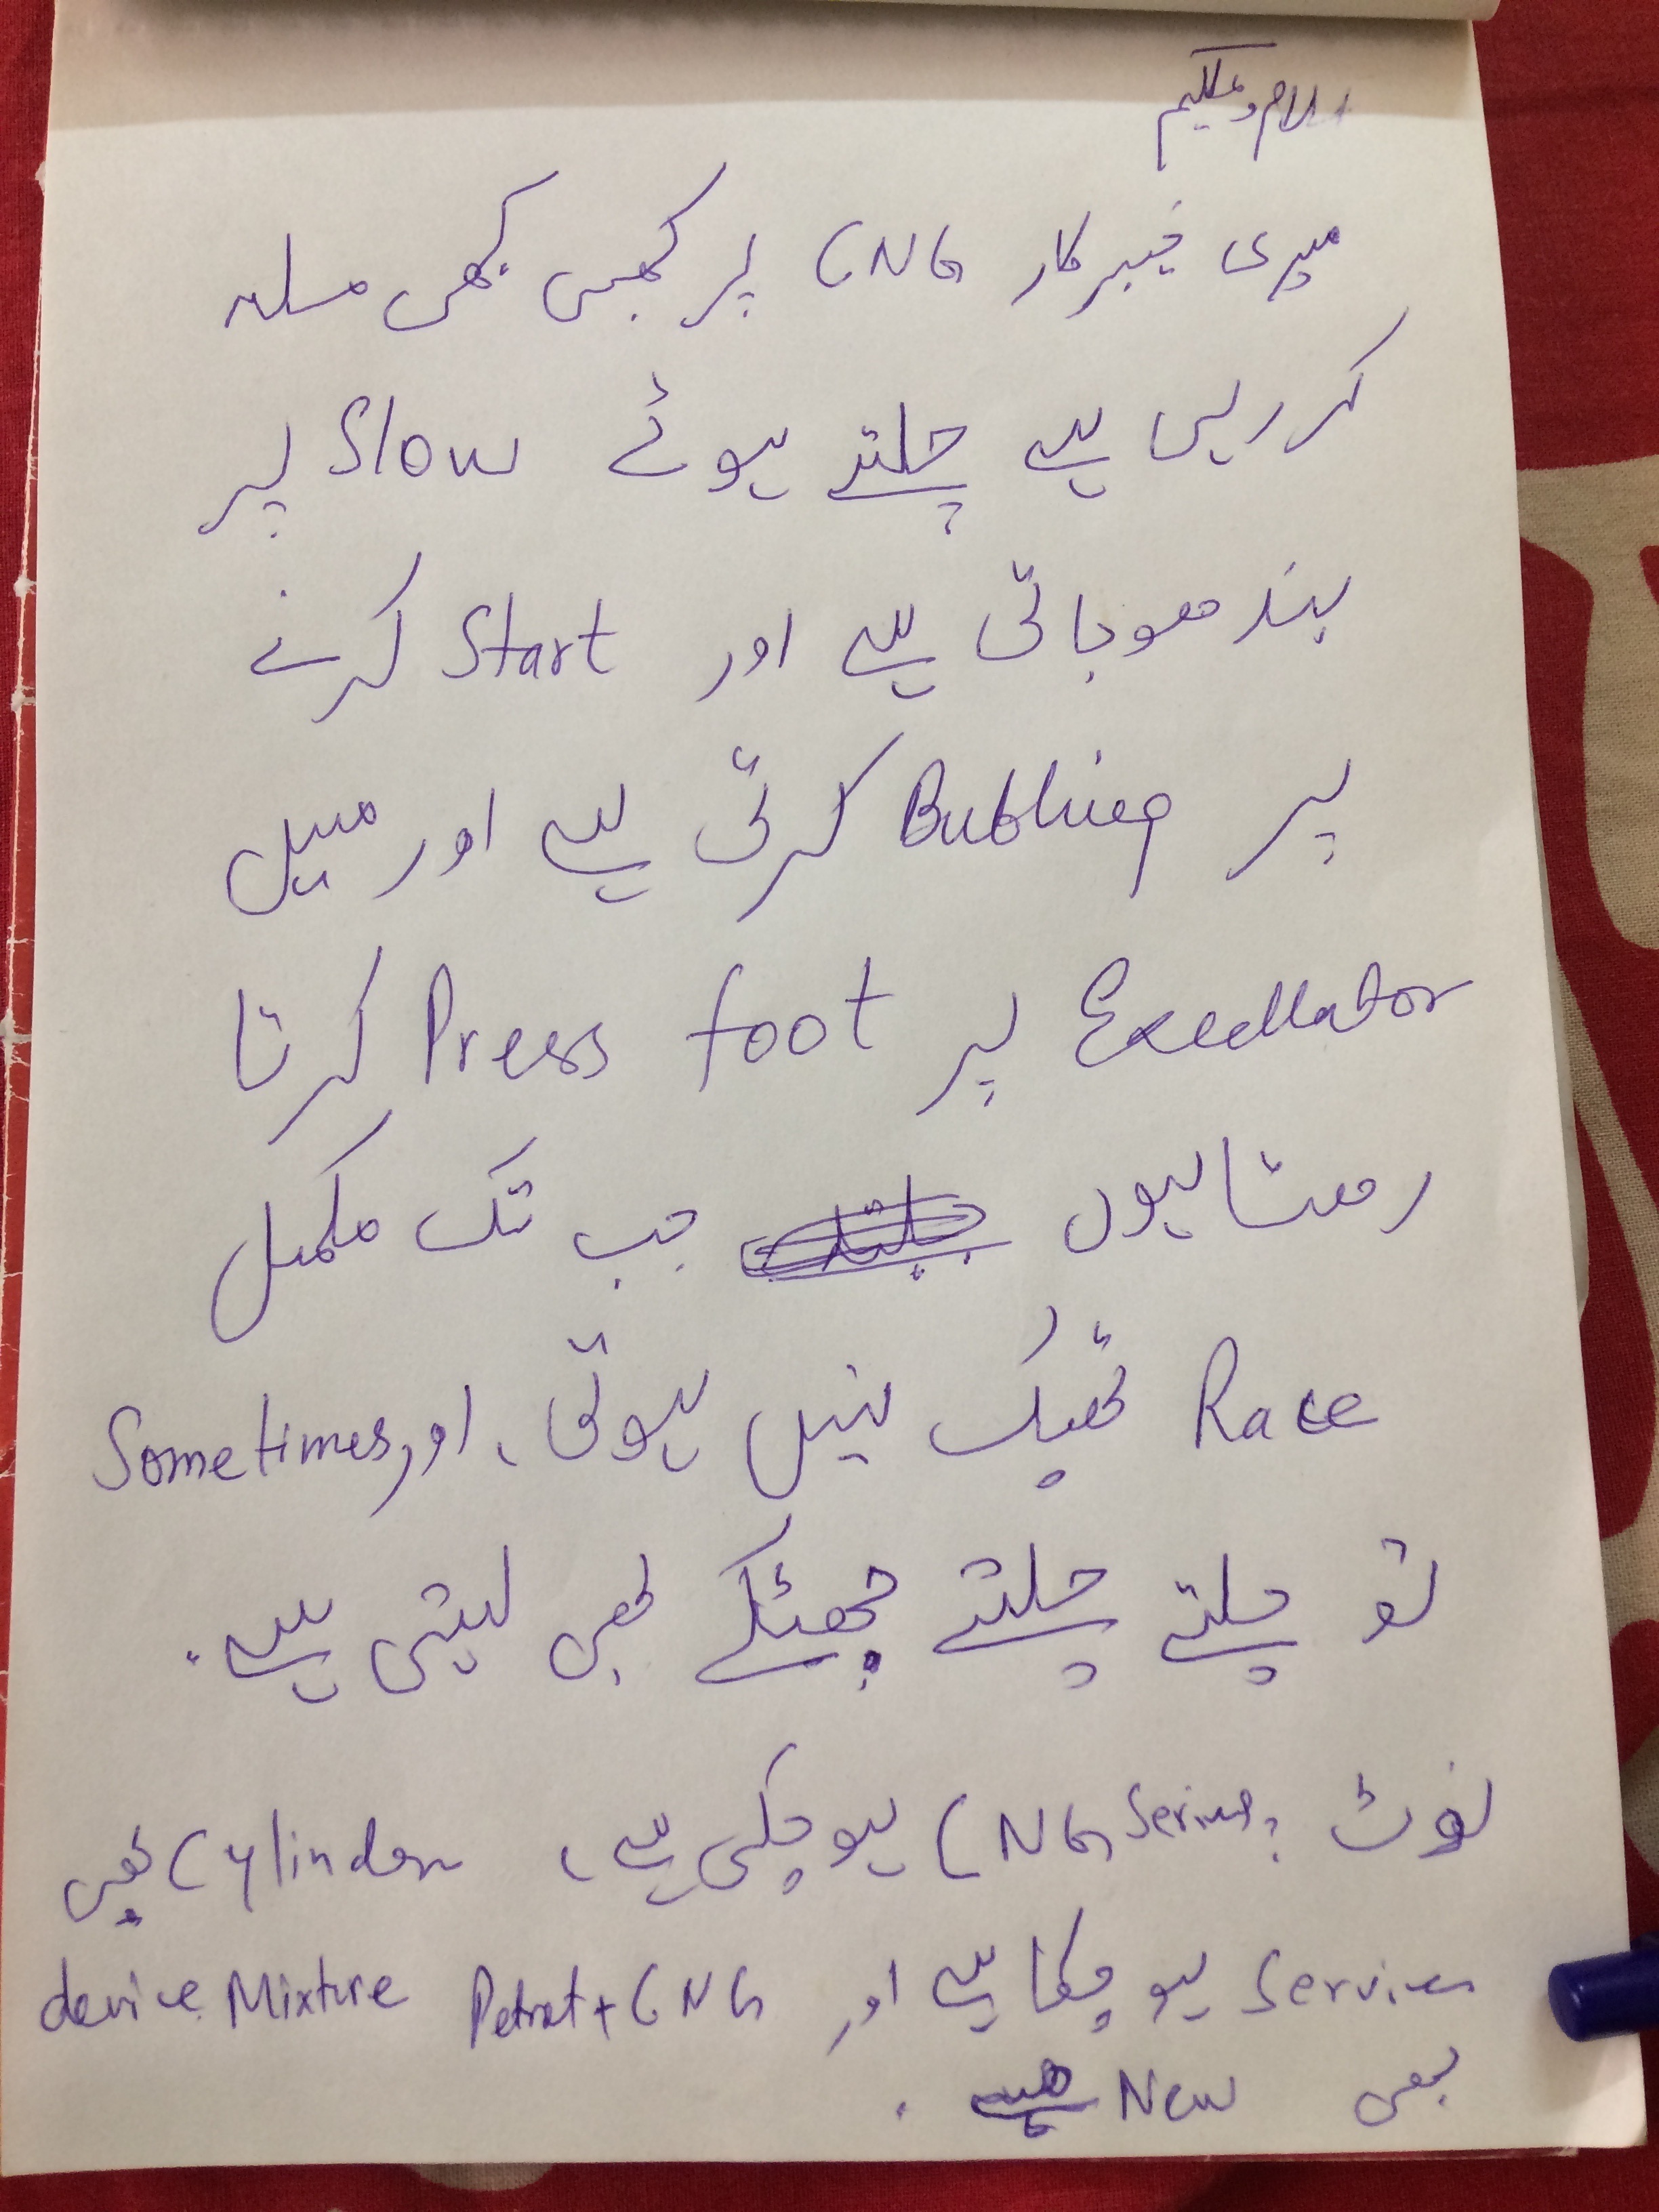 اسلام وعلیکم
میری خیبر کار CNG پر کبھی کبھی مسلہ
کر رہی ہے چلتے ہوئے Slow پر
بند ھوجاتی ہے اور Start کرنے
پر Bubling کرتی ہے اور میں
Excellator پر foot Press کرتا
رھتا ہوں جب تک مکمل
Race ٹھیک نہیں ہوتی، اور Sometimes
تو چلتے چلتے جھٹکے بھی لیتی ہے.
نوٹ: CNG Service ہو چکی ہے، Cylinder بھی
Service ہو چکا ہے اور Petrol + CNG device Mixture
بھی New ہے.